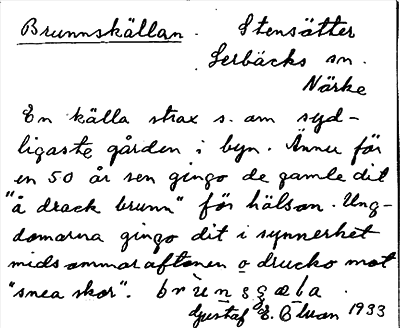 Brunnskällan. Stensätter
Lerbäcks sn.
Närke
En källa strax s. om syd-
ligaste gården i byn. Ännu för
en 50 år sen gingo de gamle dit
"å drack brunn" för hälsan. Ung-
domarna gingo dit i synnerhet
midsommaraftonen o drucko mot
"snea skor".
Gustaf E. 1933